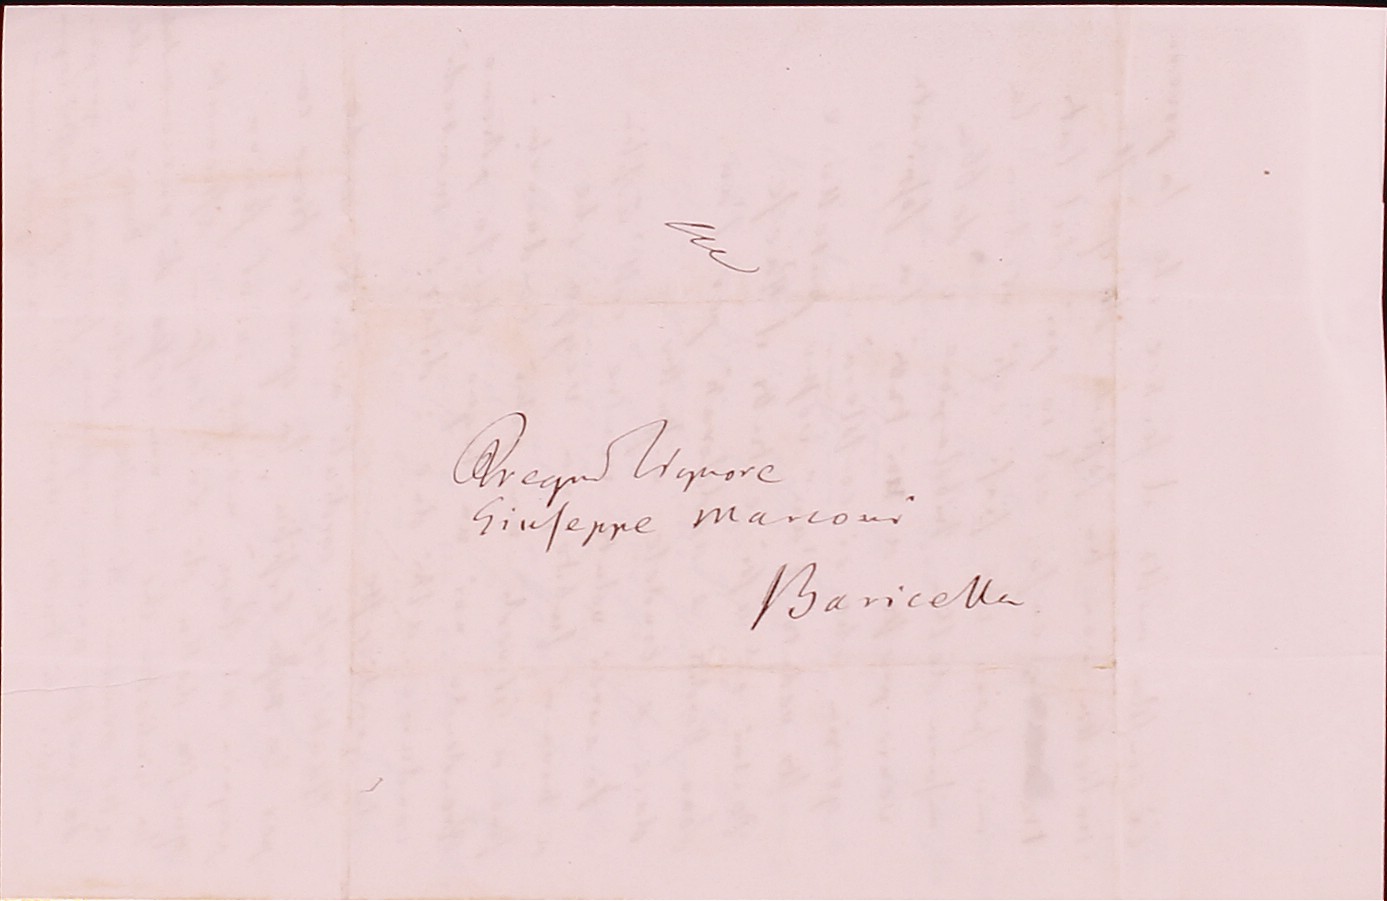 Pregmo Signore
Giuseppe Marconi
Baricella